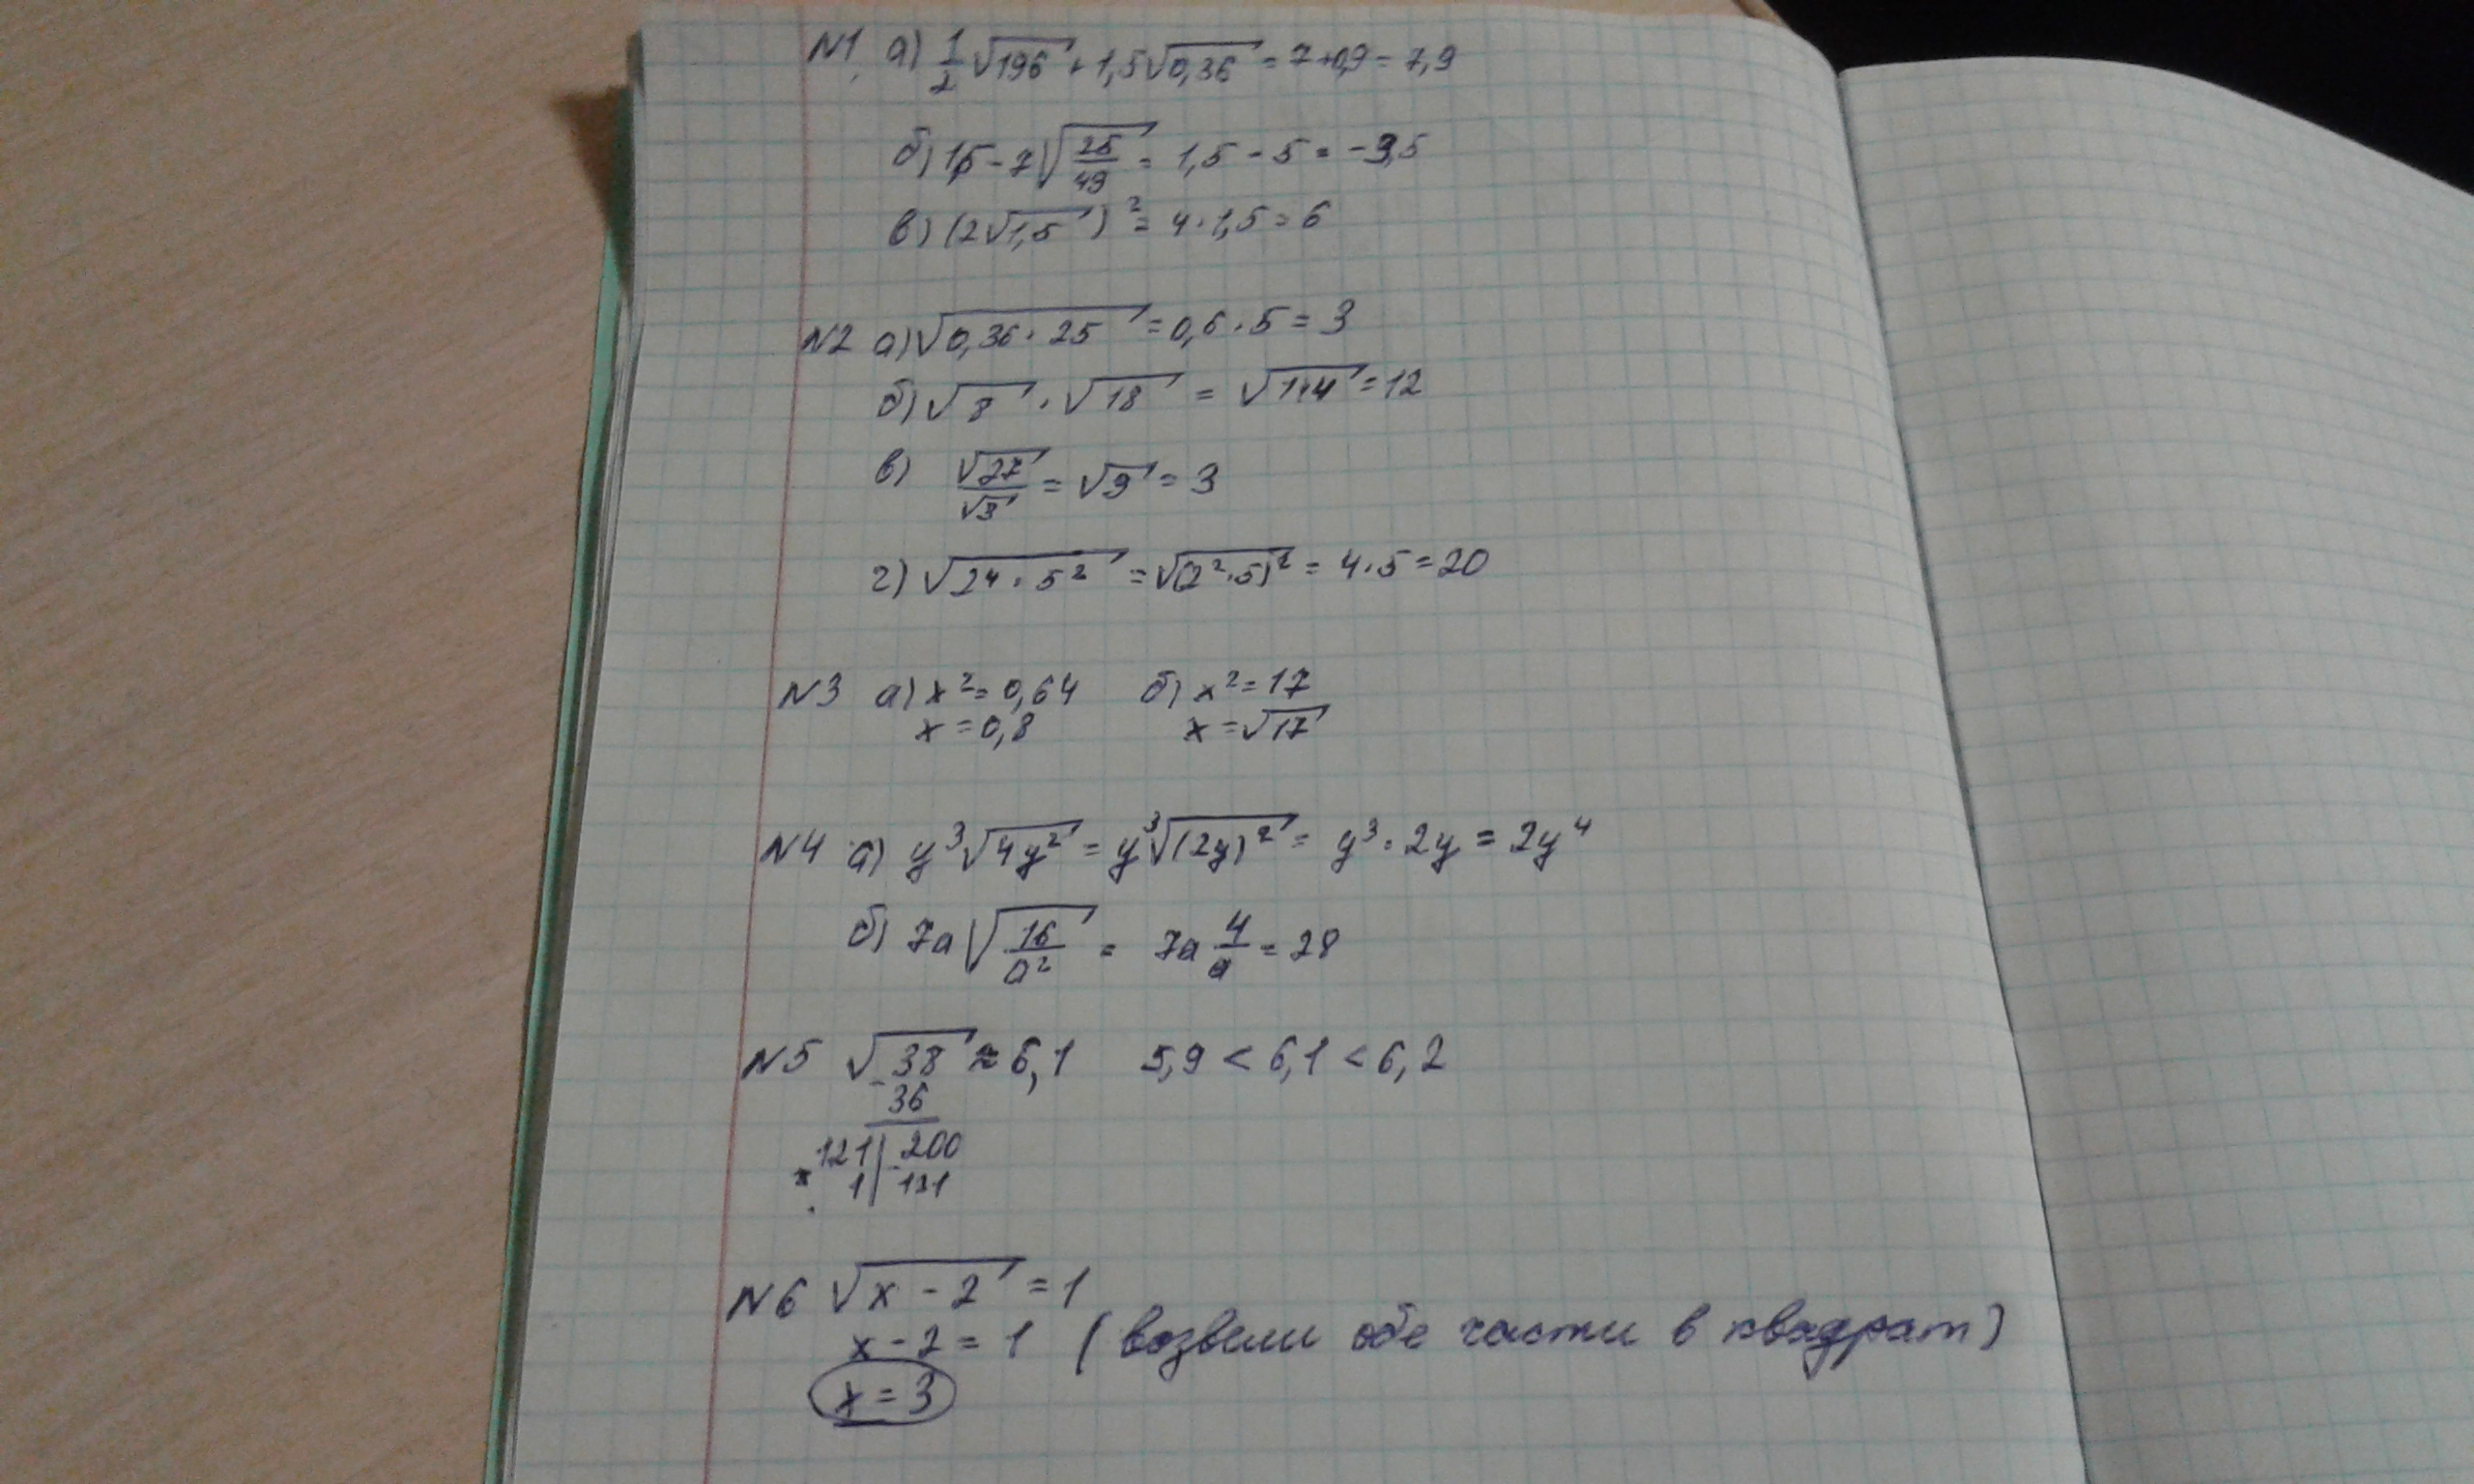 N1 а) 1/2 √196 + 1,5√0,36 = 7+0,9 = 7,9
б) 1,5 - 7√(25/49) = 1,5 - 5 = -3,5
в) (2√1,5)² = 4·1,5 = 6
N2 а) √(0,36·25) = 0,6·5 = 3
б) √8·√18 = √144 = 12
в) √27/√3 = √9 = 3
г) √(2⁴·5²) = √(2²·5)² = 4·5 = 20
N3 а) x² = 0,64 б) x² = 17
x = 0,8 x = √17
N4 а) y³√(4y²) = y³√(2y)² = y³·2y = 2y⁴
б) 7a√(16/a²) = 7a 4/a = 28
N5 √38 ≈ 6,1 5,9 < 6,1 < 6,2
- 36
121| - 200
× 1| 121
N6 √(x - 2) = 1
x - 2 = 1 (возвели обе части в квадрат)
x = 3